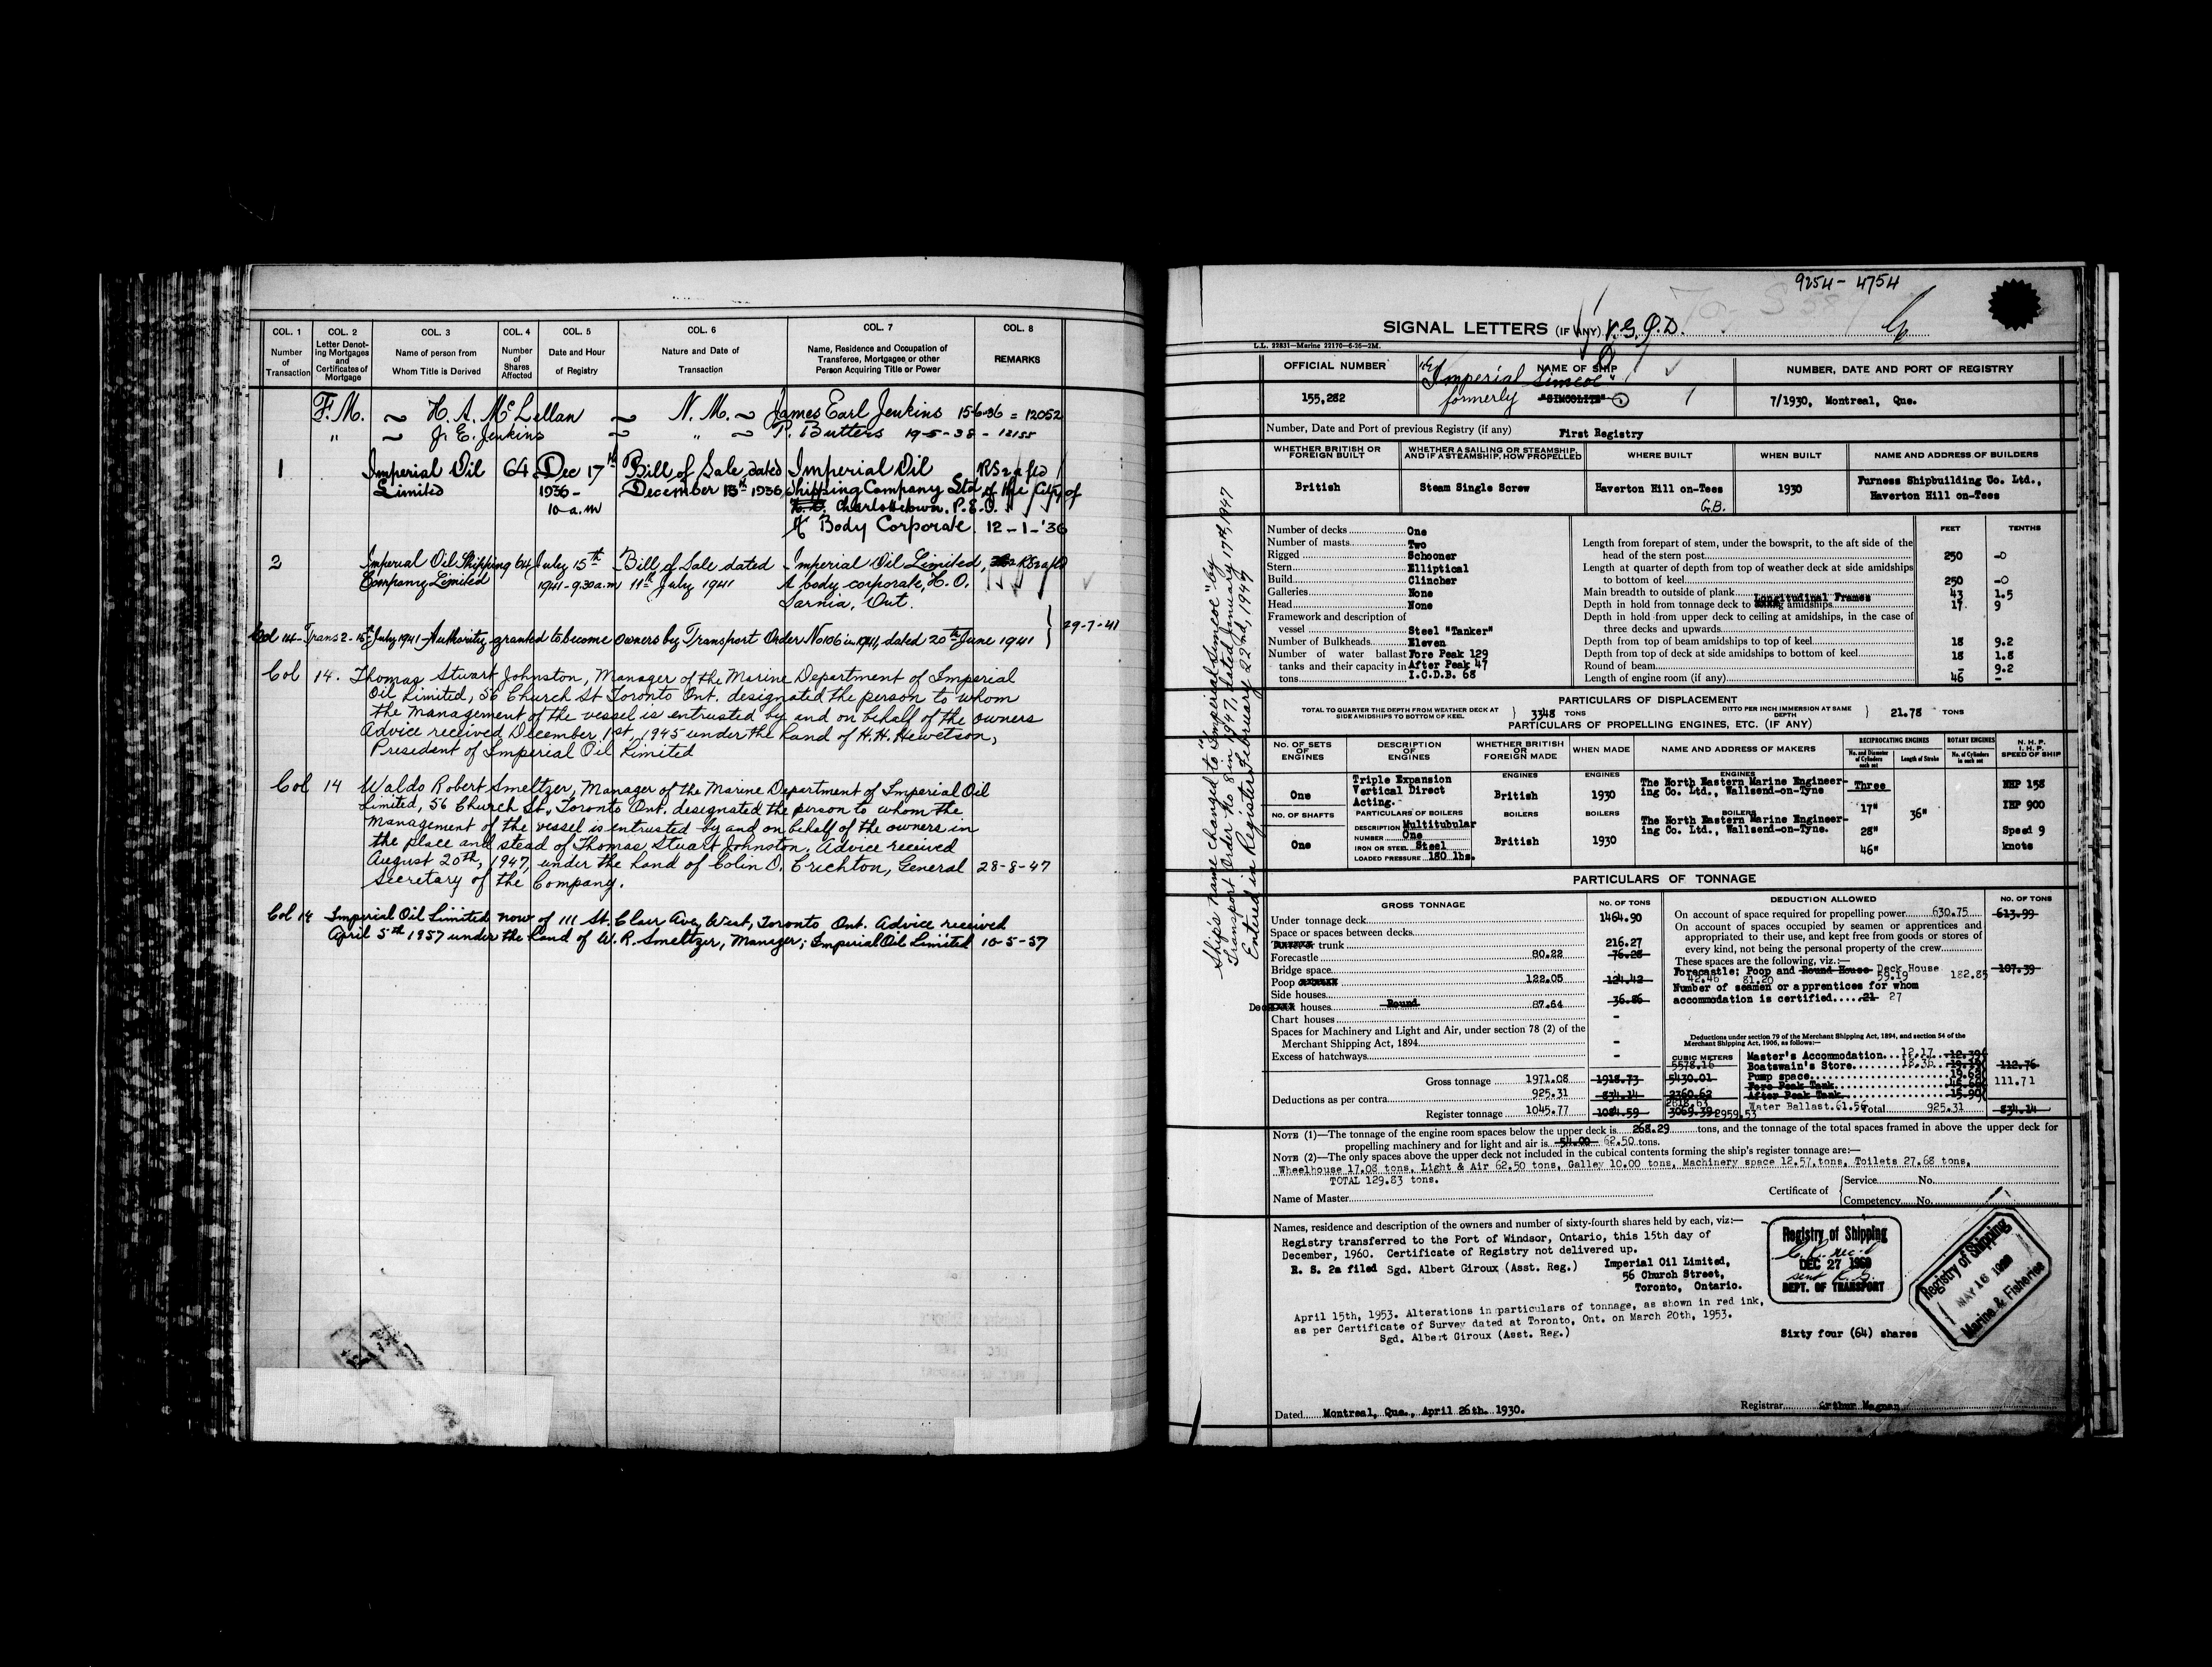 COL. 1 COL. 2 COL. 3 COL. 4 COL. 5 COL. 6 COL. 7 COL. 8
Number of Transaction
Letter Denoting Mortgages and Certificates of Mortgage
Name of person from Whom Title is Derived
Number of Shares Affected
Date and Hour of Registry
Nature and Date of Transaction
Name, Residence and Occupation of Transferee, Mortgagee or other Person Acquiring Title or Power
REMARKS
F.M. ~ H. A. McLellan ~ N. M. ~ James Earl Jenkins 15-6-36 = 12052
" ~ J. E. Jenkins ~ " ~ P. Butters 19-5-38 - 12155
1 Imperial Oil 64 Dec 17th Bill of Sale, dated Imperial Oil RS 2a fld
Limited 1936 - December 15th 1936 Shipping Company Ltd of the City of
10 a.m Charlottetown. P.E.I.
A Body Corporate. 12-1-'36
2 Imperial Oil Shipping 64 July 15th Bill of Sale dated Imperial Oil Limited, RS 2a fld
Company Limited 1941-9.30 a.m 11th July 1941 A body corporate, H.O.
Sarnia, Ont.
Col 14- Trans 2-15th July 1941-Authority granted to become owners by Transport Order No 106 in 1941, dated 20th June 1941 29-7-41
Col 14. Thomas Stuart Johnston, Manager of the Marine Department of Imperial
Oil Limited, 56 Church St Toronto Ont. designated the person to whom
the management of the vessel is entrusted by and on behalf of the owners
Advice received December 1st, 1945 under the hand of H.H. Hewetson,
President of Imperial Oil Limited
Col 14 Waldo Robert Smeltzer, Manager of the Marine Department of Imperial Oil
Limited, 56 Church St., Toronto Ont. designated the person to whom the
management of the vessel is entrusted by and on behalf of the owners in
the place and stead of Thomas Stuart Johnston. Advice received
August 20th, 1947, under the hand of Colin D. Crichton, General 28-8-47
Secretary of the Company.
Col 14 Imperial Oil Limited now of 111 St. Clair Ave, West, Toronto Ont. Advice received
April 5th 1957 under the hand of W. R. Smeltzer, Manager; Imperial Oil Limited 10-5-57
9254-4754
SIGNAL LETTERS (IF ANY) V.G.Q.D.
L.L. 22831—Marine 22170—6-26—2M.
OFFICIAL NUMBER NAME OF SHIP NUMBER, DATE AND PORT OF REGISTRY
"Imperial Simcoe"
155,282 formerly "SIMCOLITE" 7/1930, Montreal, Que.
Number, Date and Port of previous Registry (if any) First Registry
WHETHER BRITISH OR FOREIGN BUILT
WHETHER A SAILING OR STEAMSHIP, AND IF A STEAMSHIP, HOW PROPELLED
WHERE BUILT WHEN BUILT NAME AND ADDRESS OF BUILDERS
British Steam Single Screw Haverton Hill on-Tees 1930 Furness Shipbuilding Co. Ltd.,
G.B. Haverton Hill on-Tees
Ship's name changed to "Imperial Simcoe" by
Transport Order No 8 in 1947, dated January 17th, 1947
Entered in Register February 22nd, 1947
FEET TENTHS
Number of decks One
Number of masts Two
Rigged Schooner
Stern Elliptical
Build Clincher
Galleries None
Head None
Framework and description of
vessel Steel "Tanker"
Number of Bulkheads Eleven
Number of water ballast Fore Peak 129
tanks and their capacity in After Peak 47
tons I.C.D.B. 68
Length from forepart of stem, under the bowsprit, to the aft side of the
head of the stern post 250 -0
Length at quarter of depth from top of weather deck at side amidships
to bottom of keel 250 -0
Main breadth to outside of plank 43 1.5
Longitudinal Frames
Depth in hold from tonnage deck to amidships 17 9
Depth in hold from upper deck to ceiling at amidships, in the case of
three decks and upwards
Depth from top of beam amidships to top of keel 18 9.2
Depth from top of deck at side amidships to bottom of keel 18 1.8
Round of beam - 9.2
Length of engine room (if any) 46 -
PARTICULARS OF DISPLACEMENT
TOTAL TO QUARTER THE DEPTH FROM WEATHER DECK AT SIDE AMIDSHIPS TO BOTTOM OF KEEL 3348 TONS DITTO PER INCH IMMERSION AT SAME DEPTH 21.78 TONS
PARTICULARS OF PROPELLING ENGINES, ETC. (IF ANY)
NO. OF SETS OF ENGINES
DESCRIPTION OF ENGINES
WHETHER BRITISH OR FOREIGN MADE
WHEN MADE
NAME AND ADDRESS OF MAKERS
RECIPROCATING ENGINES
No. and Diameter of Cylinders each set
Length of Stroke
ROTARY ENGINES
No. of Cylinders in each set
N. H. P. I. H. P. SPEED OF SHIP
ENGINES ENGINES ENGINES
One Triple Expansion Vertical Direct Acting. British 1930 The North Eastern Marine Engineer-
ing Co. Ltd., Wallsend-on-Tyne
Three NHP 158
17" 36" IHP 900
28" Speed 9
46" knots
NO. OF SHAFTS PARTICULARS OF BOILERS BOILERS BOILERS BOILERS
One DESCRIPTION Multitubular British 1930 The North Eastern Marine Engineer-
NUMBER One ing Co. Ltd., Wallsend-on-Tyne.
IRON OR STEEL Steel
LOADED PRESSURE 180 lbs.
PARTICULARS OF TONNAGE
GROSS TONNAGE NO. OF TONS DEDUCTION ALLOWED NO. OF TONS
Under tonnage deck 1464.90
Space or spaces between decks
trunk 216.27
Forecastle 80.22 76.28
Bridge space
Poop 122.05 124.42
Side houses
Deck houses Round 87.64 36.86
Chart houses -
Spaces for Machinery and Light and Air, under section 78 (2) of the
Merchant Shipping Act, 1894 -
Excess of hatchways -
Gross tonnage 1971.08 1918.73
Deductions as per contra 925.31 834.14
Register tonnage 1045.77 1084.59
CUBIC METERS
5578.16
5430.01
2360.62
2618.63
3069.39 2959.53
On account of space required for propelling power 630.75 613.99
On account of spaces occupied by seamen or apprentices and
appropriated to their use, and kept free from goods or stores of
every kind, not being the personal property of the crew
These spaces are the following, viz.:—
Forecastle; Poop and Round House Deck House 182.85 107.39
42.46 81.20 59.19
Number of seamen or apprentices for whom
accommodation is certified 21 27
Deductions under section 79 of the Merchant Shipping Act, 1894, and section 54 of the
Merchant Shipping Act, 1906, as follows:—
Master's Accommodation 12.17 12.39
Boatswain's Store 18.36 19.19 112.76
Pump space 19.62
Fore Peak Tank 111.71
After Peak Tank 15.90
Water Ballast.61.56 Total 925.31 834.14
NOTE (1)—The tonnage of the engine room spaces below the upper deck is 268.29 tons, and the tonnage of the total spaces framed in above the upper deck for
propelling machinery and for light and air is 54.00 62.50 tons.
NOTE (2)—The only spaces above the upper deck not included in the cubical contents forming the ship's register tonnage are:—
Wheelhouse 17.08 tons, Light & Air 62.50 tons, Galley 10.00 tons, Machinery space 12.57 tons, Toilets 27.68 tons,
TOTAL 129.83 tons.
Name of Master Certificate of Service No.
Competency No.
Names, residence and description of the owners and number of sixty-fourth shares held by each, viz:—
Registry transferred to the Port of Windsor, Ontario, this 15th day of
December, 1960. Certificate of Registry not delivered up.
R. S. 2a filed Sgd. Albert Giroux (Asst. Reg.)
Imperial Oil Limited,
56 Church Street,
Toronto, Ontario.
Registry of Shipping
DEC 27 1960
DEPT. OF TRANSPORT
Registry of Shipping
MAY 16 1930
Marine & Fisheries
April 15th, 1953. Alterations in particulars of tonnage, as shown in red ink,
as per Certificate of Survey dated at Toronto, Ont. on March 20th, 1953.
Sgd. Albert Giroux (Asst. Reg.)
Sixty four (64) shares
Dated Montreal, Que., April 26th. 1930. Registrar Arthur Magnan